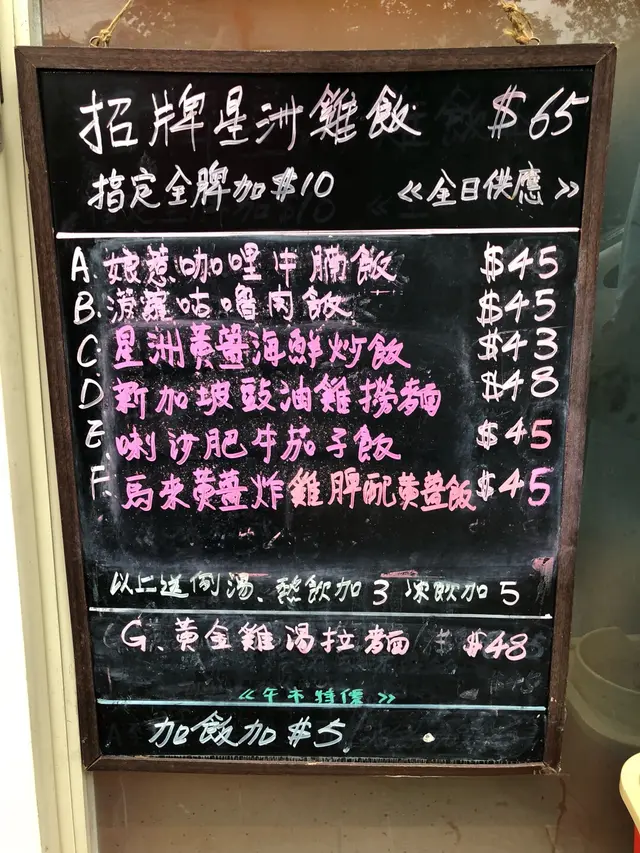 招牌星洲雞飯 $65
指定全髀加$10 《全日供應》
A. 娘惹咖哩牛腩飯 $45
B. 菠蘿咕嚕肉飯 $45
C. 星洲黃薑海鮮炒飯 $43
D 新加坡豉油雞撈麵 $48
E 喇沙肥牛茄子飯 $45
F. 馬來黃薑炸雞髀配黃薑飯 $45
以上送例湯、熱飲加3 凍飲加5
G、黃金雞湯拉麵 $48
《午市特價》
加飯加$5